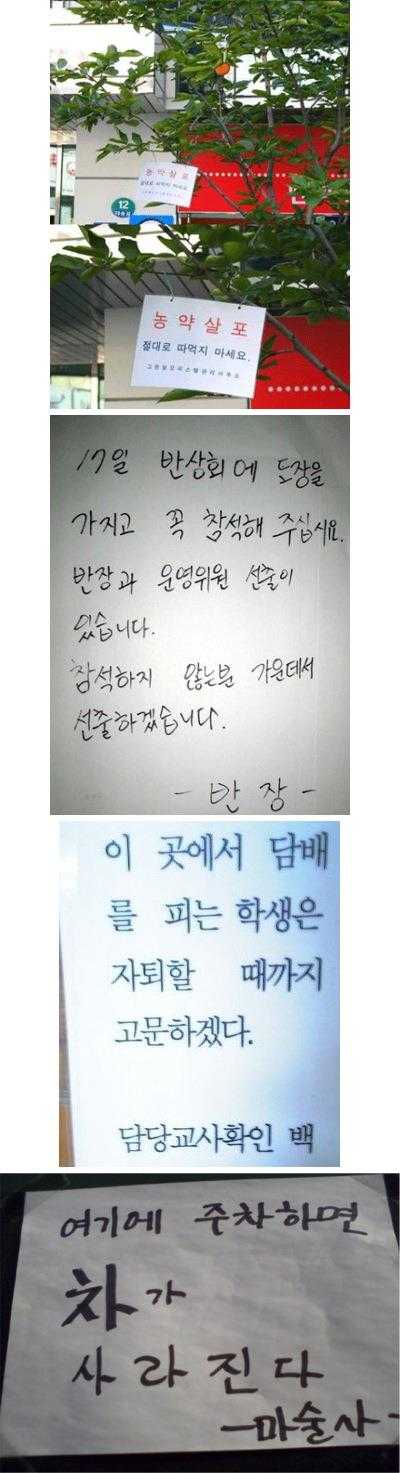 농약살포
절대로 따먹지 마세요.
12
농약살포
절대로 따먹지 마세요.
17일 반상회에 도장을
가지고 꼭 참석해 주십시요.
반장과 운영위원 선출이
있습니다.
참석하지 않는분 가운데서
선출하겠습니다.
- 반장 -
이 곳에서 담배
를 피는 학생은
자퇴할 때까지
고문하겠다.
담당교사확인 백
여기에 주차하면
차가
사라진다
-마술사-